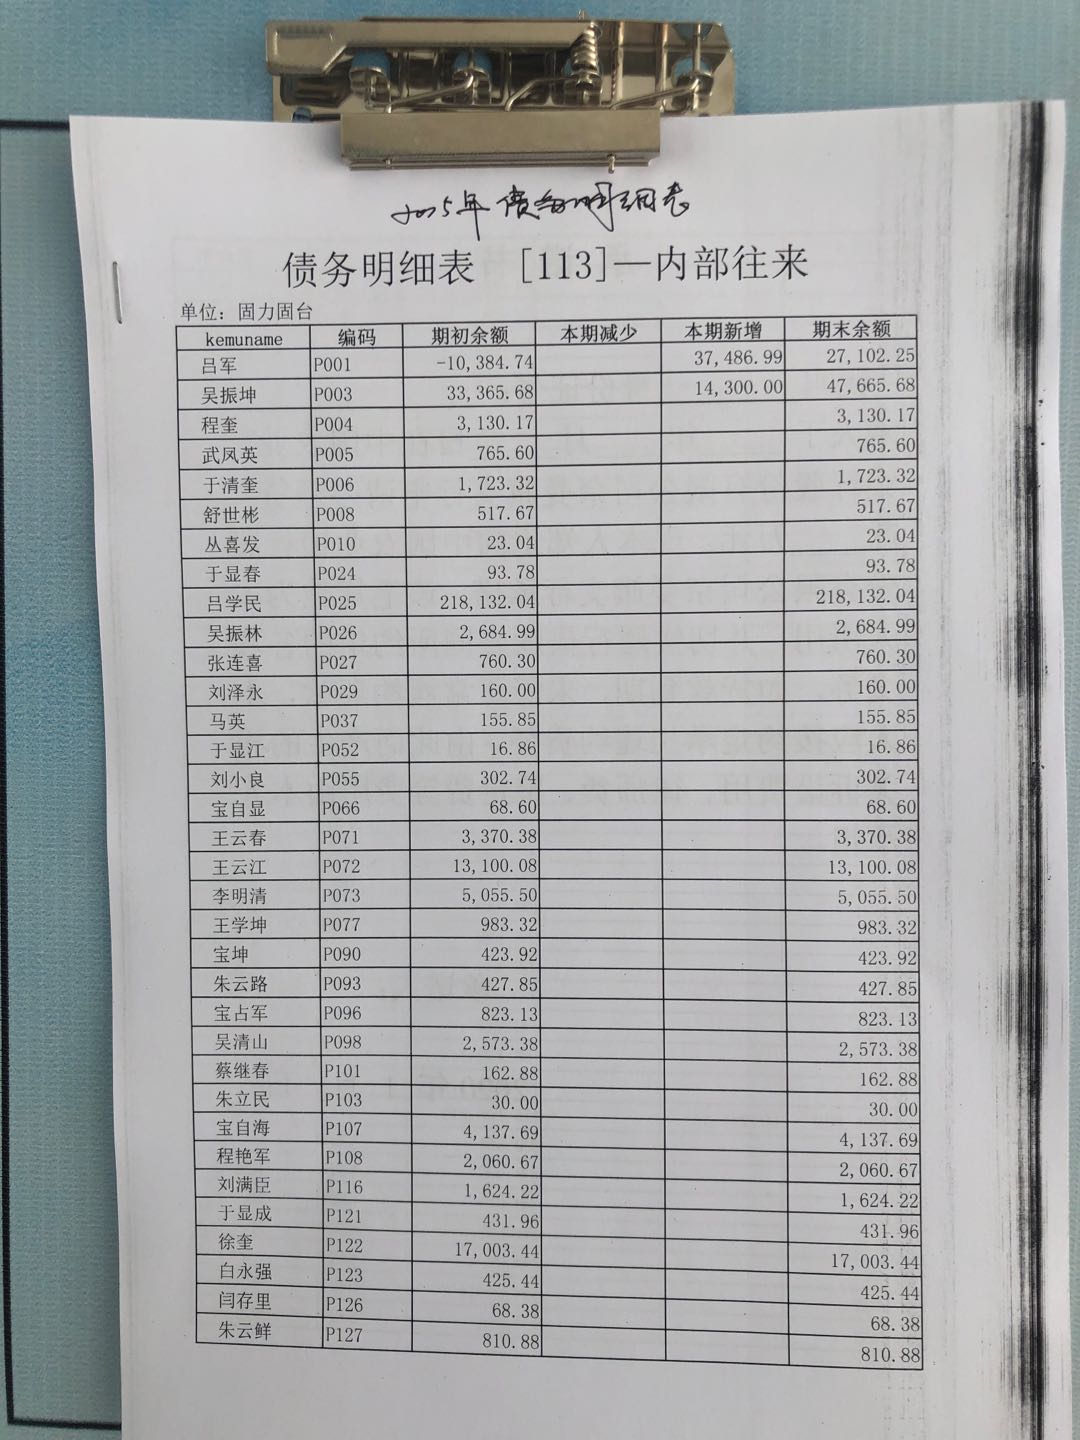 2025年债务明细表
债务明细表 [113]—内部往来
单位：固力固台
kemuname 编码 期初余额 本期减少 本期新增 期末余额
吕军 P001 -10,384.74 37,486.99 27,102.25
吴振坤 P003 33,365.68 14,300.00 47,665.68
程奎 P004 3,130.17 3,130.17
武凤英 P005 765.60 765.60
于清奎 P006 1,723.32 1,723.32
舒世彬 P008 517.67 517.67
丛喜发 P010 23.04 23.04
于显春 P024 93.78 93.78
吕学民 P025 218,132.04 218,132.04
吴振林 P026 2,684.99 2,684.99
张连喜 P027 760.30 760.30
刘泽永 P029 160.00 160.00
马英 P037 155.85 155.85
于显江 P052 16.86 16.86
刘小良 P055 302.74 302.74
宝自显 P066 68.60 68.60
王云春 P071 3,370.38 3,370.38
王云江 P072 13,100.08 13,100.08
李明清 P073 5,055.50 5,055.50
王学坤 P077 983.32 983.32
宝坤 P090 423.92 423.92
朱云路 P093 427.85 427.85
宝占军 P096 823.13 823.13
吴清山 P098 2,573.38 2,573.38
蔡继春 P101 162.88 162.88
朱立民 P103 30.00 30.00
宝自海 P107 4,137.69 4,137.69
程艳军 P108 2,060.67 2,060.67
刘满臣 P116 1,624.22 1,624.22
于显成 P121 431.96 431.96
徐奎 P122 17,003.44 17,003.44
白永强 P123 425.44 425.44
闫存里 P126 68.38 68.38
朱云鲜 P127 810.88 810.88